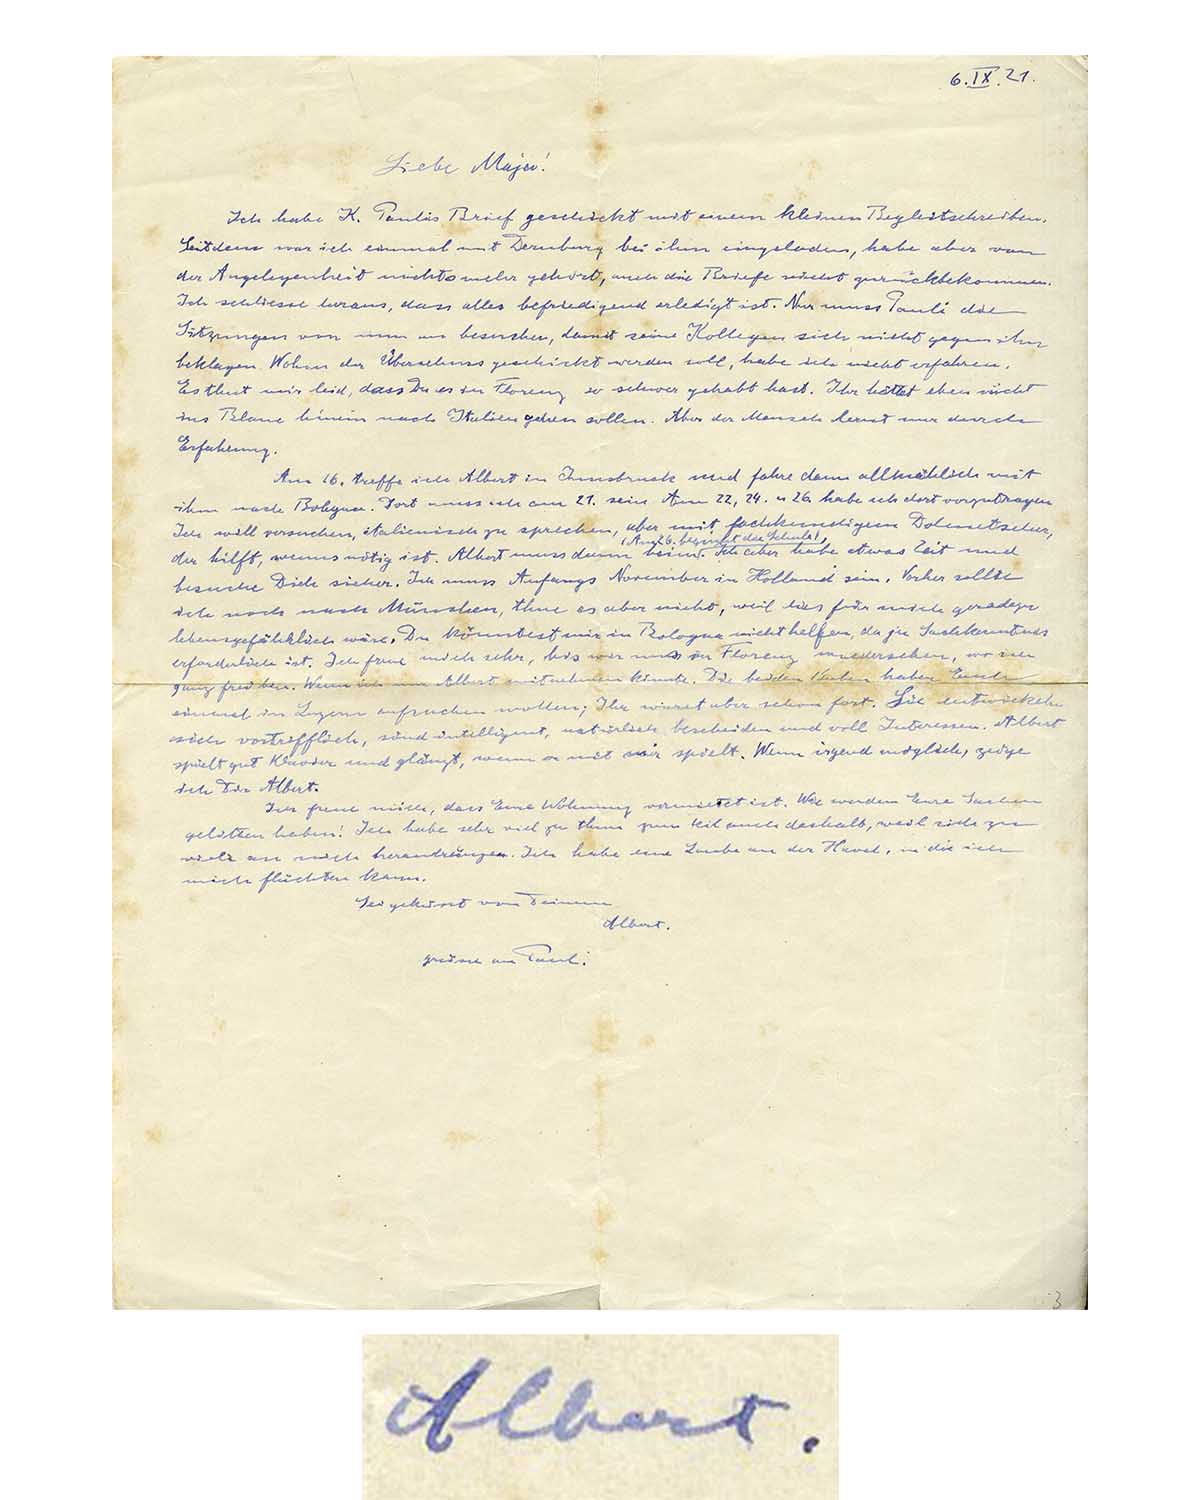 6. IX. 21.
Liebe Maja!
Ich habe K. Paulis Brief geschickt mit einem kleinen Begleitschreiben.
Seitdem war ich einmal mit Dernburg bei ihm eingeladen, habe aber von
der Angelegenheit nichts mehr gehört, auch die Briefe nicht zurückbekommen.
Ich schliesse heraus, dass alles befriedigend erledigt ist. Nur muss Pauli die
Sitzungen von nun an besuchen, damit seine Kollegen sich nicht gegen ihn
beklagen. Wohin der Überschuss geschickt werden soll, habe ich nicht erfahren.
Es thut mir leid, dass Du es in Florenz so schwer gehabt hast. Ihr hättet eben nicht
ins Blaue hinein nach Italien gehen sollen. Aber der Mensch lernt nur durch
Erfahrung.
Am 16. treffe ich Albert in Innsbruck und fahre dann allmählich mit
ihm nach Bologna. Dort muss ich am 21. sein. Am 22, 24. u 26. habe ich dort vorzutragen
Ich will versuchen, italienisch zu sprechen, aber mit fachkundigem Dolmetscher,
der hilft, wenns nötig ist. Albert muss dann heim. (Am 26. beginnt die Schule), Ich aber habe etwas Zeit und
besuche Dich sicher. Ich muss Anfangs November in Holland sein. Vorher sollte
ich noch nach München, thue es aber nicht, weil dies für mich geradezu
lebensgefährlich wäre. Du könntest mir in Bologna nicht helfen, da ja Sachkenntnis
erforderlich ist. Ich freue mich sehr, bis wir uns in Florenz wiedersehen, wo wir
ganz frei Wenn ich nur Albert mitnehmen könnte. Die beiden haben Euch
einmal in Luzern aufsuchen wollen; Ihr waret aber schon fort. Sie entwickeln
sich vortrefflich, sind intelligent, natürlich, bescheiden und voll Interessen. Albert
spielt gut Klavier und glänzt, wenn er mit mir spielt. Wenn irgend möglich, zeige
ich Dir Albert.
Ich freue mich, dass Eure Wohnung vermietet ist. Wie werden Eure Sachen
gelitten haben! Ich habe sehr viel zu thun zum teil auch deshalb, weil sich zu
viele an mich herandrängen. Ich habe eine Laube an der Havel, in die ich
mich flüchten kann.
Sei geküsst von Deinem
Albert.
grüsse an Paul.
3
Albert.